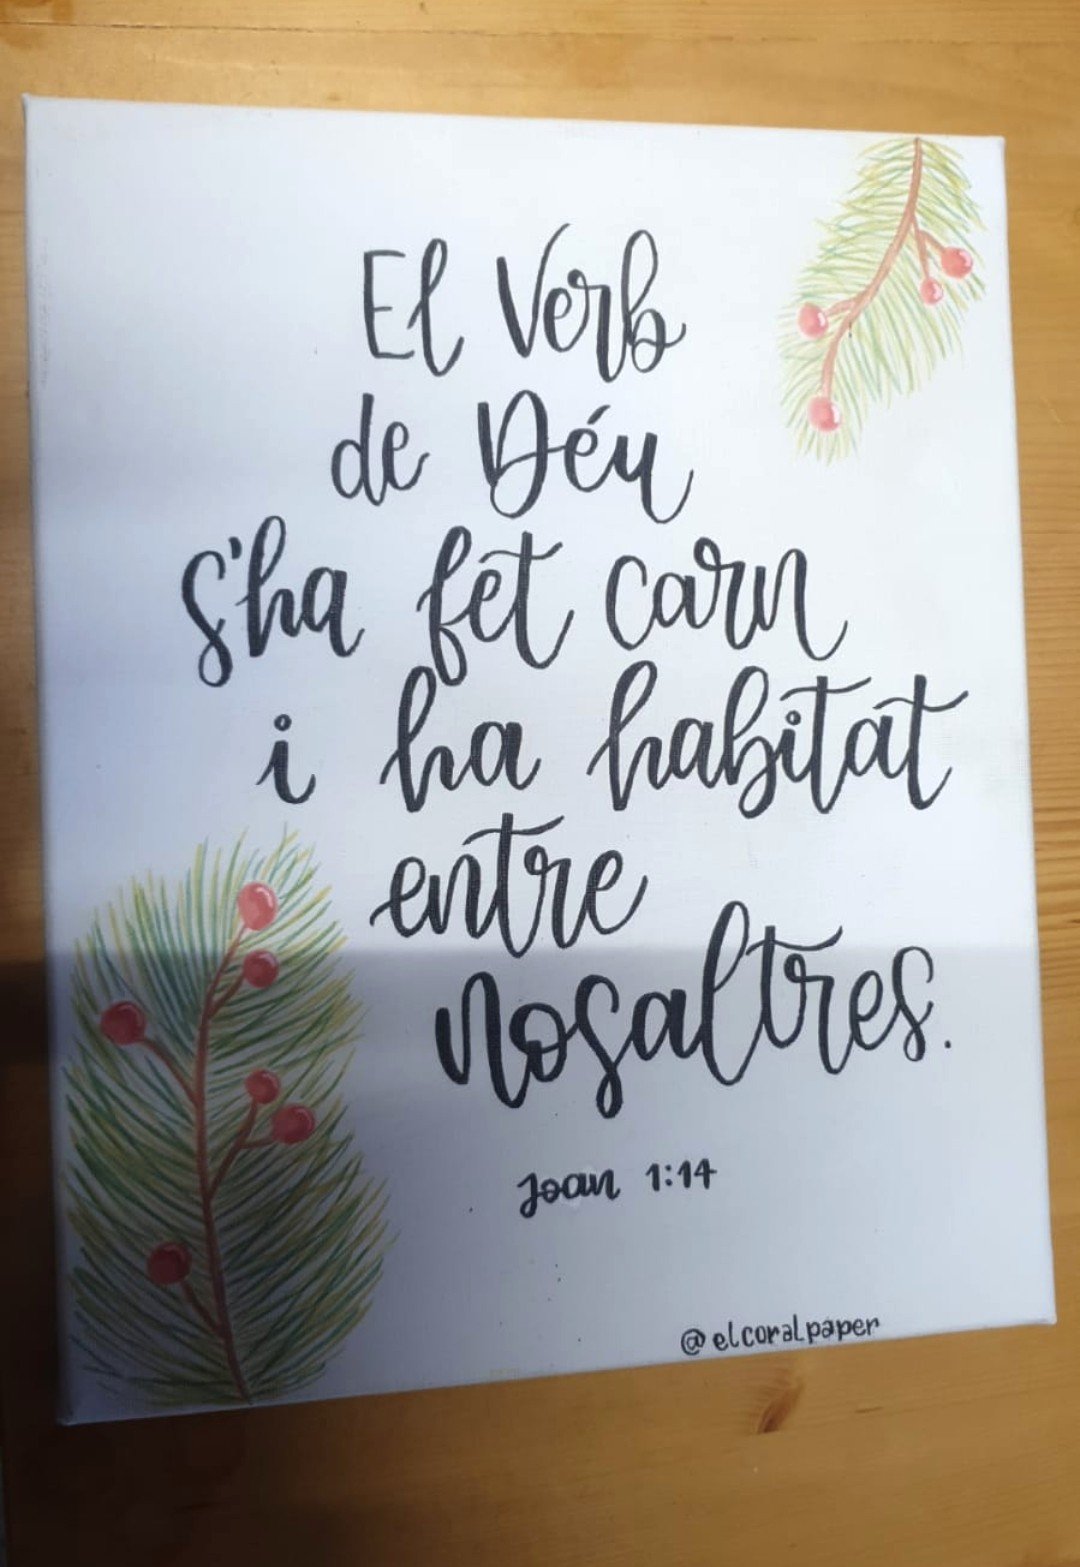 El Verb
de Déu
s'ha fet carn
i ha habitat
entre
nosaltres.
Joan 1:14
@elcoralpaper